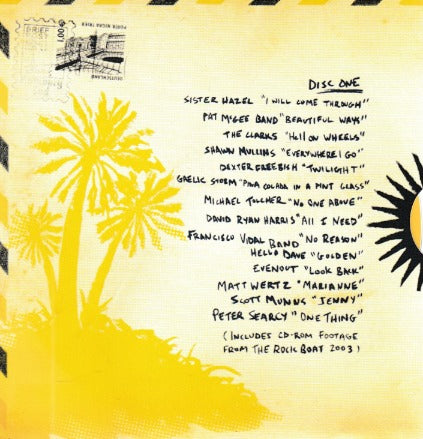 BRIEF
POST
100
PORTA NIGRA TRIER
DEUTSCHLAND
DISC ONE
SISTER HAZEL "I WILL COME THROUGH"
PAT McGEE BAND "BEAUTIFUL WAYS"
THE CLARKS "Hell ON WHEELS"
SHAWN MULLINS "EVERYWHERE I GO"
DEXTER FREEBISH "TWILIGHT"
GAELIC STORM "PINA COLADA IN A PINT GLASS"
MICHAEL TOLCHER "NO ONE ABOVE"
DAVID RYAN HARRIS "All I NEED"
FRANCISCO VIDAL BAND "NO REASON"
HELLO DAVE "GOLDEN"
EVENOUT "LOOK BACK"
MATT WERTZ "MARIANNE"
SCOTT MUNNS "JENNY"
PETER SEARCY "ONE THING"
(INCLUDES CD-ROM FOOTAGE
FROM THE ROCK BOAT 2003)